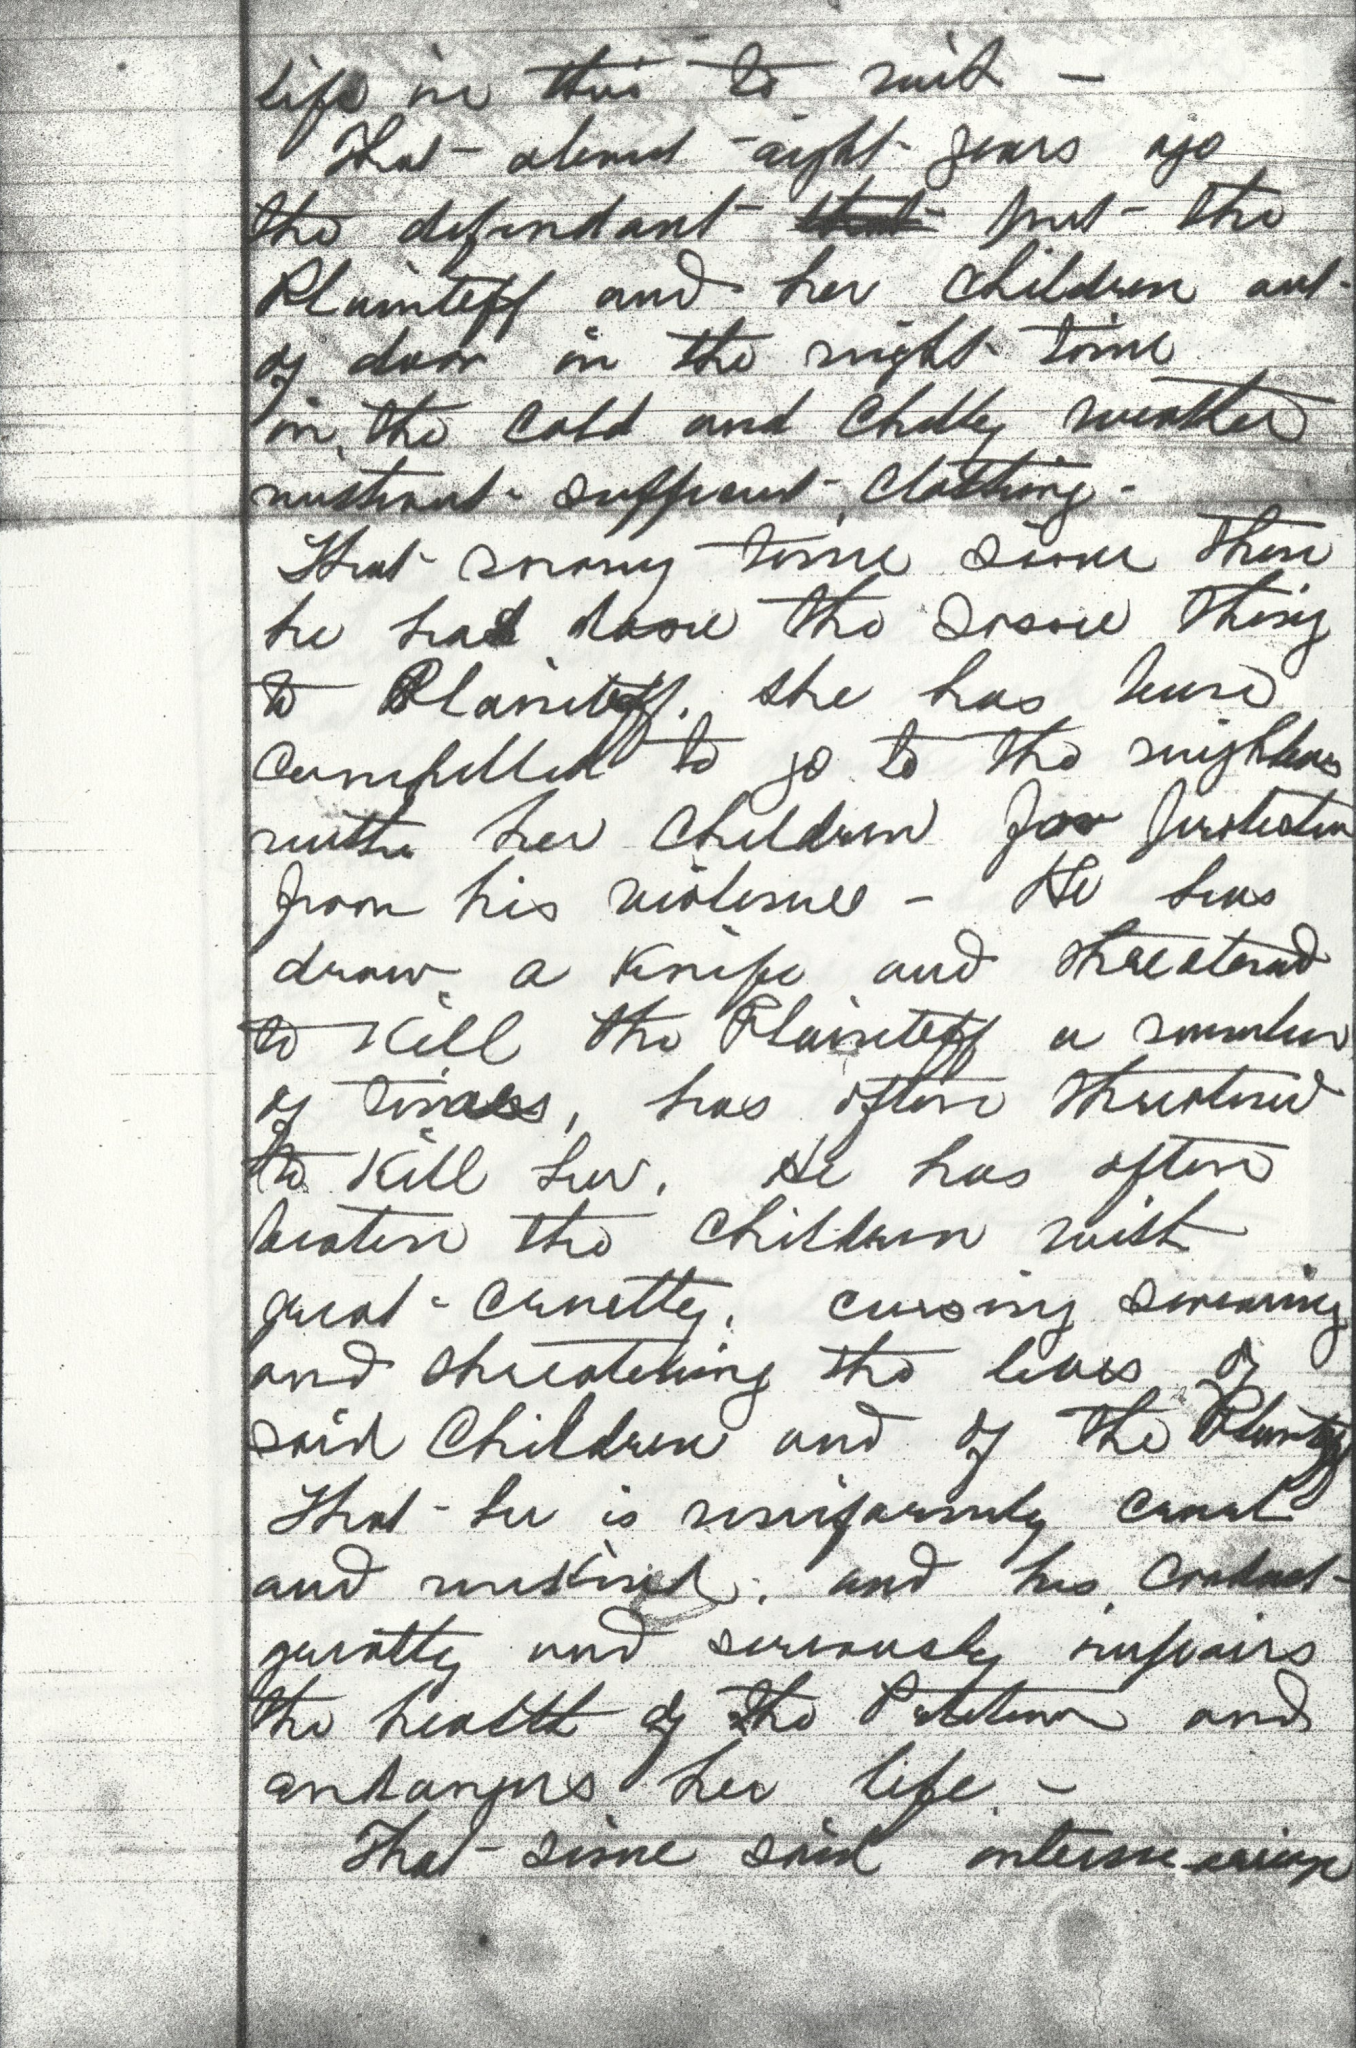 life in this to wit —
That about eight years ago
the defendant that put the
Plainteff and her children out
of door in the night time
in the cold and chilly weather
without sufficient clothing -
That many time since then
he has done the same thing
to Plainteff. She has been
compelled to go to the neighbors
with her children for protection
from his violence — He has
draw a knife and threatened
to kill the Plainteff a number
of times, has often threatened
to kill her. He has often
beaten the children with
great cruelty. cursing swearing
and threatening the lives of
said children and of the Plainteff
That he is uniformly cruel
and unkind. and his conduct
greatly and seriously impairs
the health of the Petitioner and
endangers her life —
That since said intermarriage